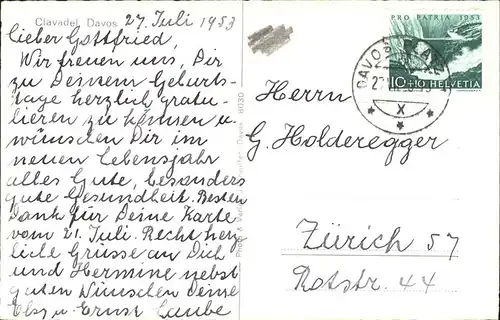 Clavadel Davos
27. Juli 1953
Lieber Gottfried,
Wir freuen uns, Dir
zu Deinem Geburts-
tage herzlich gratu-
lieren zu können u.
wünschen Dir im
neuen Lebensjahr
alles Gute, besonders
gute Gesundheit. Besten
Dank für Deine Karte
vom 21. Juli. Recht herz
liche Grüsse an Dich
und Hermine nebst
guten Wünschen Deine
Elsy u. Ernst Laube
8030
PRO PATRIA 1953
10+10 HELVETIA
DAVOS PLATZ
X
Herrn
G. Holderegger
Zürich 57
Rotstr. 44